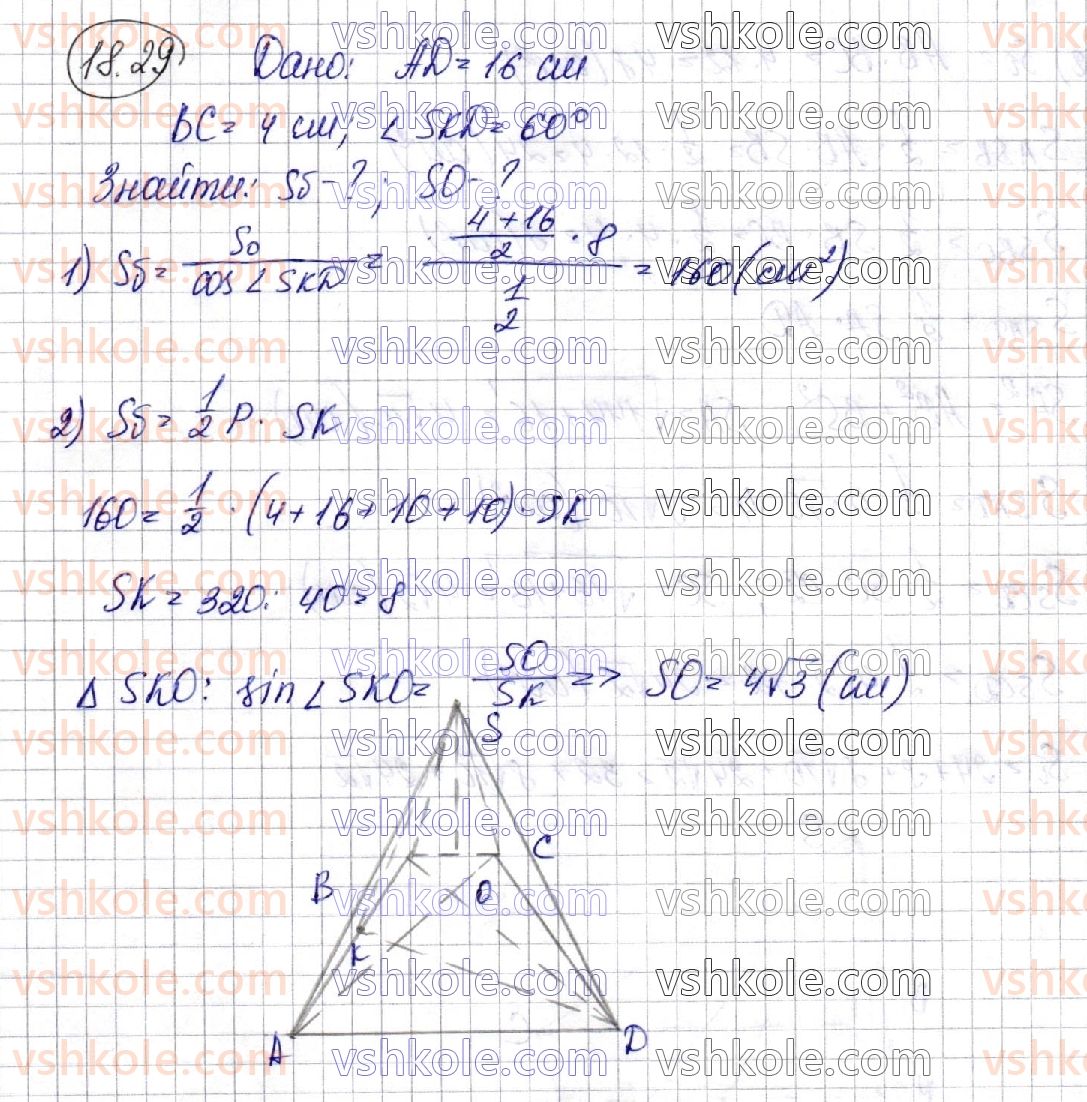 18.29 Дано: AD = 16 см
BC = 4 см; ∠ SKD = 60°
Знайти: Sб - ?; SO - ?
1) Sб = So / cos ∠ SKD = (4 + 16)/2 · 8 / (1/2) = 160 (см²)
2) Sб = 1/2 P · SK
160 = 1/2 · (4 + 16 + 10 + 10) · SK
SK = 320 : 40 = 8
Δ SKO: sin ∠ SKO = SO / SK => SO = 4√3 (см)
S
C
B
O
K
A
D
vshkole.com